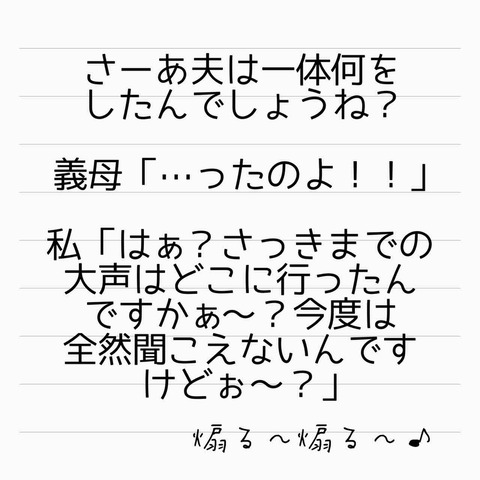 さーあ夫は一体何を
したんでしょうね？
義母「…ったのよ！！」
私「はぁ？さっきまでの
大声はどこに行ったん
ですかぁ〜？今度は
全然聞こえないんです
けどぉ〜？」
煽る〜煽る〜♪